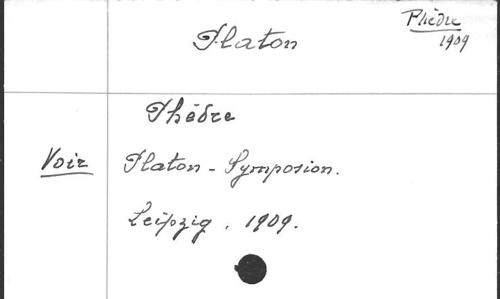 Platon
Phèdre
1909
Phèdre
Voir Platon - Symposion.
Leipzig. 1909.